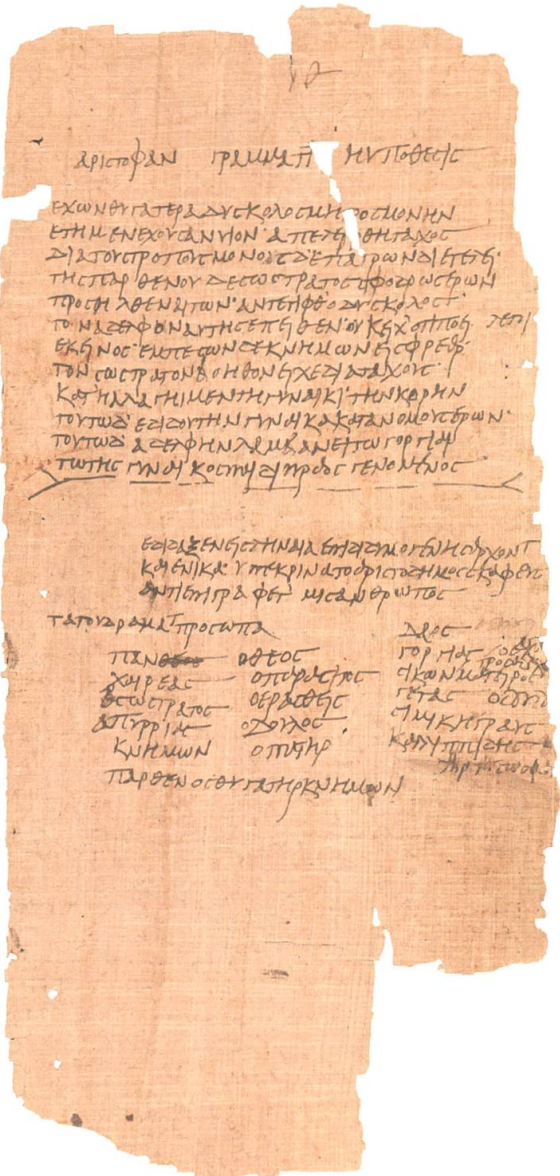 ΑΡΙϹΤΟΦΑΝ ΓΡΑΜΜΑΤΙ Η ΥΠΟΘΕϹΙϹ
ΕΧΩΝΘΥΓΑΤΕΡΑΔΥϹΚΟΛΟϹΜΗΤΡΟϹΜΟΝΗΝ
ΕΓΗΜΕΝΕΧΟΥϹΑΝΥΙΟΝ ΑΠΕΛΕΙΦΘΗΤΑΧΟϹ
ΔΙΑΤΟΥϹΤΡΟΠΟΥϹΜΟΝΟϹΔΕΠΑΓΡΩΝΔΙΕΤΕΛΕΙ
ΤΗϹΠΑΡΘΕΝΟΥΔΕϹΩϹΤΡΑΤΟϹϹΦΟΔΡΩϹΕΡΩΝ
ΠΡΟϹΗΛΘΕΝΑΙΤΩΝ ΑΝΤΕΠΙΦΘΟΔΥϹΚΟΛΟϹ
ΤΟΝΑΔΕΛΦΟΝΑΥΤΗϹΕΠΕΙΘΕΝ ΟΥΚΕΙΧΟΤΙΠΟΕΙ ΛΕΓΕΙ
ΕΚΕΙΝΟϹ ΕΜΠΕϹΩΝΔΕΚΝΗΜΩΝΕΙϹΦΡΕΑΡ
ΤΟΝϹΩϹΤΡΑΤΟΝΒΟΗΘΟΝΕΙΧΕΔΙΑΤΑΧΟΥϹ
ΚΑΤΗΛΛΑΓΗΜΕΝΤΗΓΥΝΑΙΚΙ ΤΗΝΚΟΡΗΝ
ΤΟΥΤΩΔ ΕΔΙΔΟΥΤΗΝΓΥΝΑΙΚΑΚΑΤΑΝΟΜΟΥϹΕΡΩΝ
ΤΟΥΤΩΔ ΑΔΕΛΦΗΝΛΑΜΒΑΝΕΙΤΩΓΟΡΓΙΑΙ
ΤΩΤΗϹΓΥΝΑΙΚΟϹΠΑΙΔΙΠΡΑΟϹΓΕΝΟΜΕΝΟϹ
ΕΔΙΔΑΞΕΝΕΙϹΛΗΝΑΙΑΕΠΙΔΙΔΥΜΟΓΕΝΗϹΑΡΧΟΝΤ
ΚΑΙΕΝΙΚΑ ΥΠΕΚΡΙΝΑΤΟΑΡΙϹΤΟΔΗΜΟϹϹΚΑΦΕΥϹ
ΑΝΤΕΠΙΓΡΑΦΕΤ ΜΙϹΑΝΘΡΩΠΟϹ
ΤΑΤΟΥΔΡΑΜΑΤ ΠΡΟϹΩΠΑ
ΠΑΝ ΟΘΕΟϹ
ΧΑΙΡΕΑϹ ΟΠΑΡΑϹΙΤΟϹ
ϹΩϹΤΡΑΤΟϹ ΟΕΡΑϹΘΕΙϹ
ΠΥΡΡΙΑϹ ΟΔΟΥΛΟϹ
ΚΝΗΜΩΝ ΟΠΑΤΗΡ
ΠΑΡΘΕΝΟϹΘΥΓΑΤΗΡΚΝΗΜΩΝ
ΔΑΟϹ
ΓΟΡΓΙΑϹ
ϹΙΚΩΝΜΑΓΕΙΡΟϹ
ΓΕΤΑϹ ΟΔΟΥΛ
ϹΙΜΙΚΗΓΡΑΥϹ
ΚΑΛΛΙΠΠΙΔΗϹ